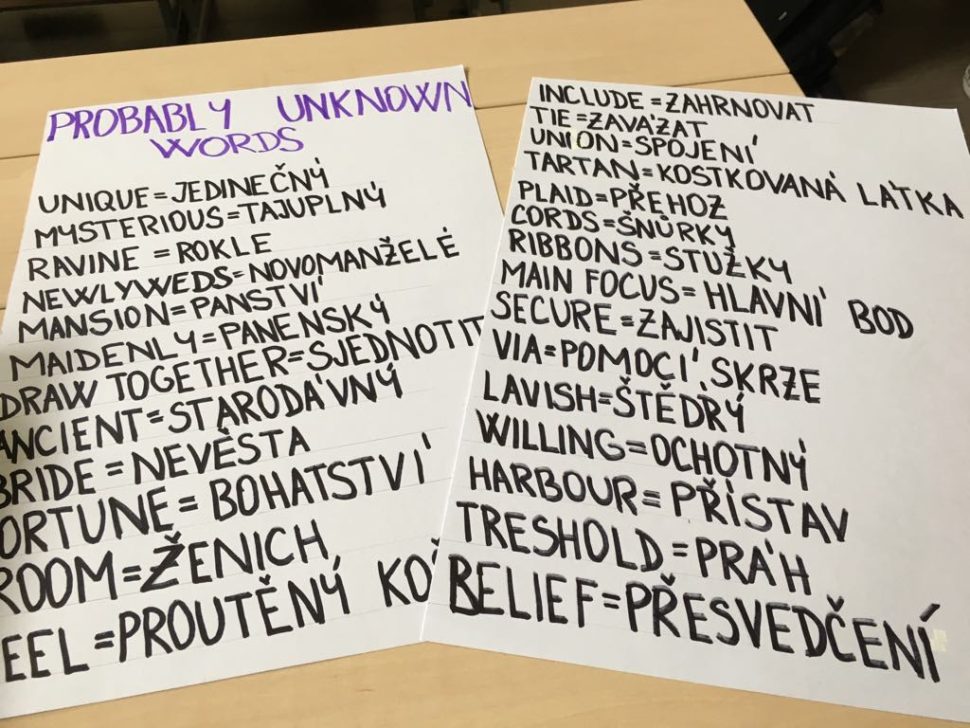 PROBABLY UNKNOWN
WORDS
UNIQUE=JEDINEČNÝ
MYSTERIOUS=TAJUPLNÝ
RAVINE=ROKLE
NEWLYWEDS=NOVOMANŽELÉ
MANSION=PANSTVÍ
MAIDENLY=PANENSKÝ
DRAW TOGETHER=SJEDNOTIT
ANCIENT=STARODÁVNÝ
BRIDE=NEVĚSTA
ORTUNE=BOHATSTVÍ
ROOM=ŽENICH
EEL=PROUTĚNÝ KO
INCLUDE=ZAHRNOVAT
TIE=ZAVÁZAT
UNION=SPOJENÍ
TARTAN=KOSTKOVANÁ LÁTKA
PLAID=PŘEHOZ
CORDS=ŠŇŮRKY
RIBBONS=STUŽKY
MAIN FOCUS=HLAVNÍ BOD
SECURE=ZAJISTIT
VIA=POMOCÍ, SKRZE
LAVISH=ŠTĚDRÝ
WILLING=OCHOTNÝ
HARBOUR=PŘÍSTAV
TRESHOLD=PRÁH
BELIEF=PŘESVEDČENÍ